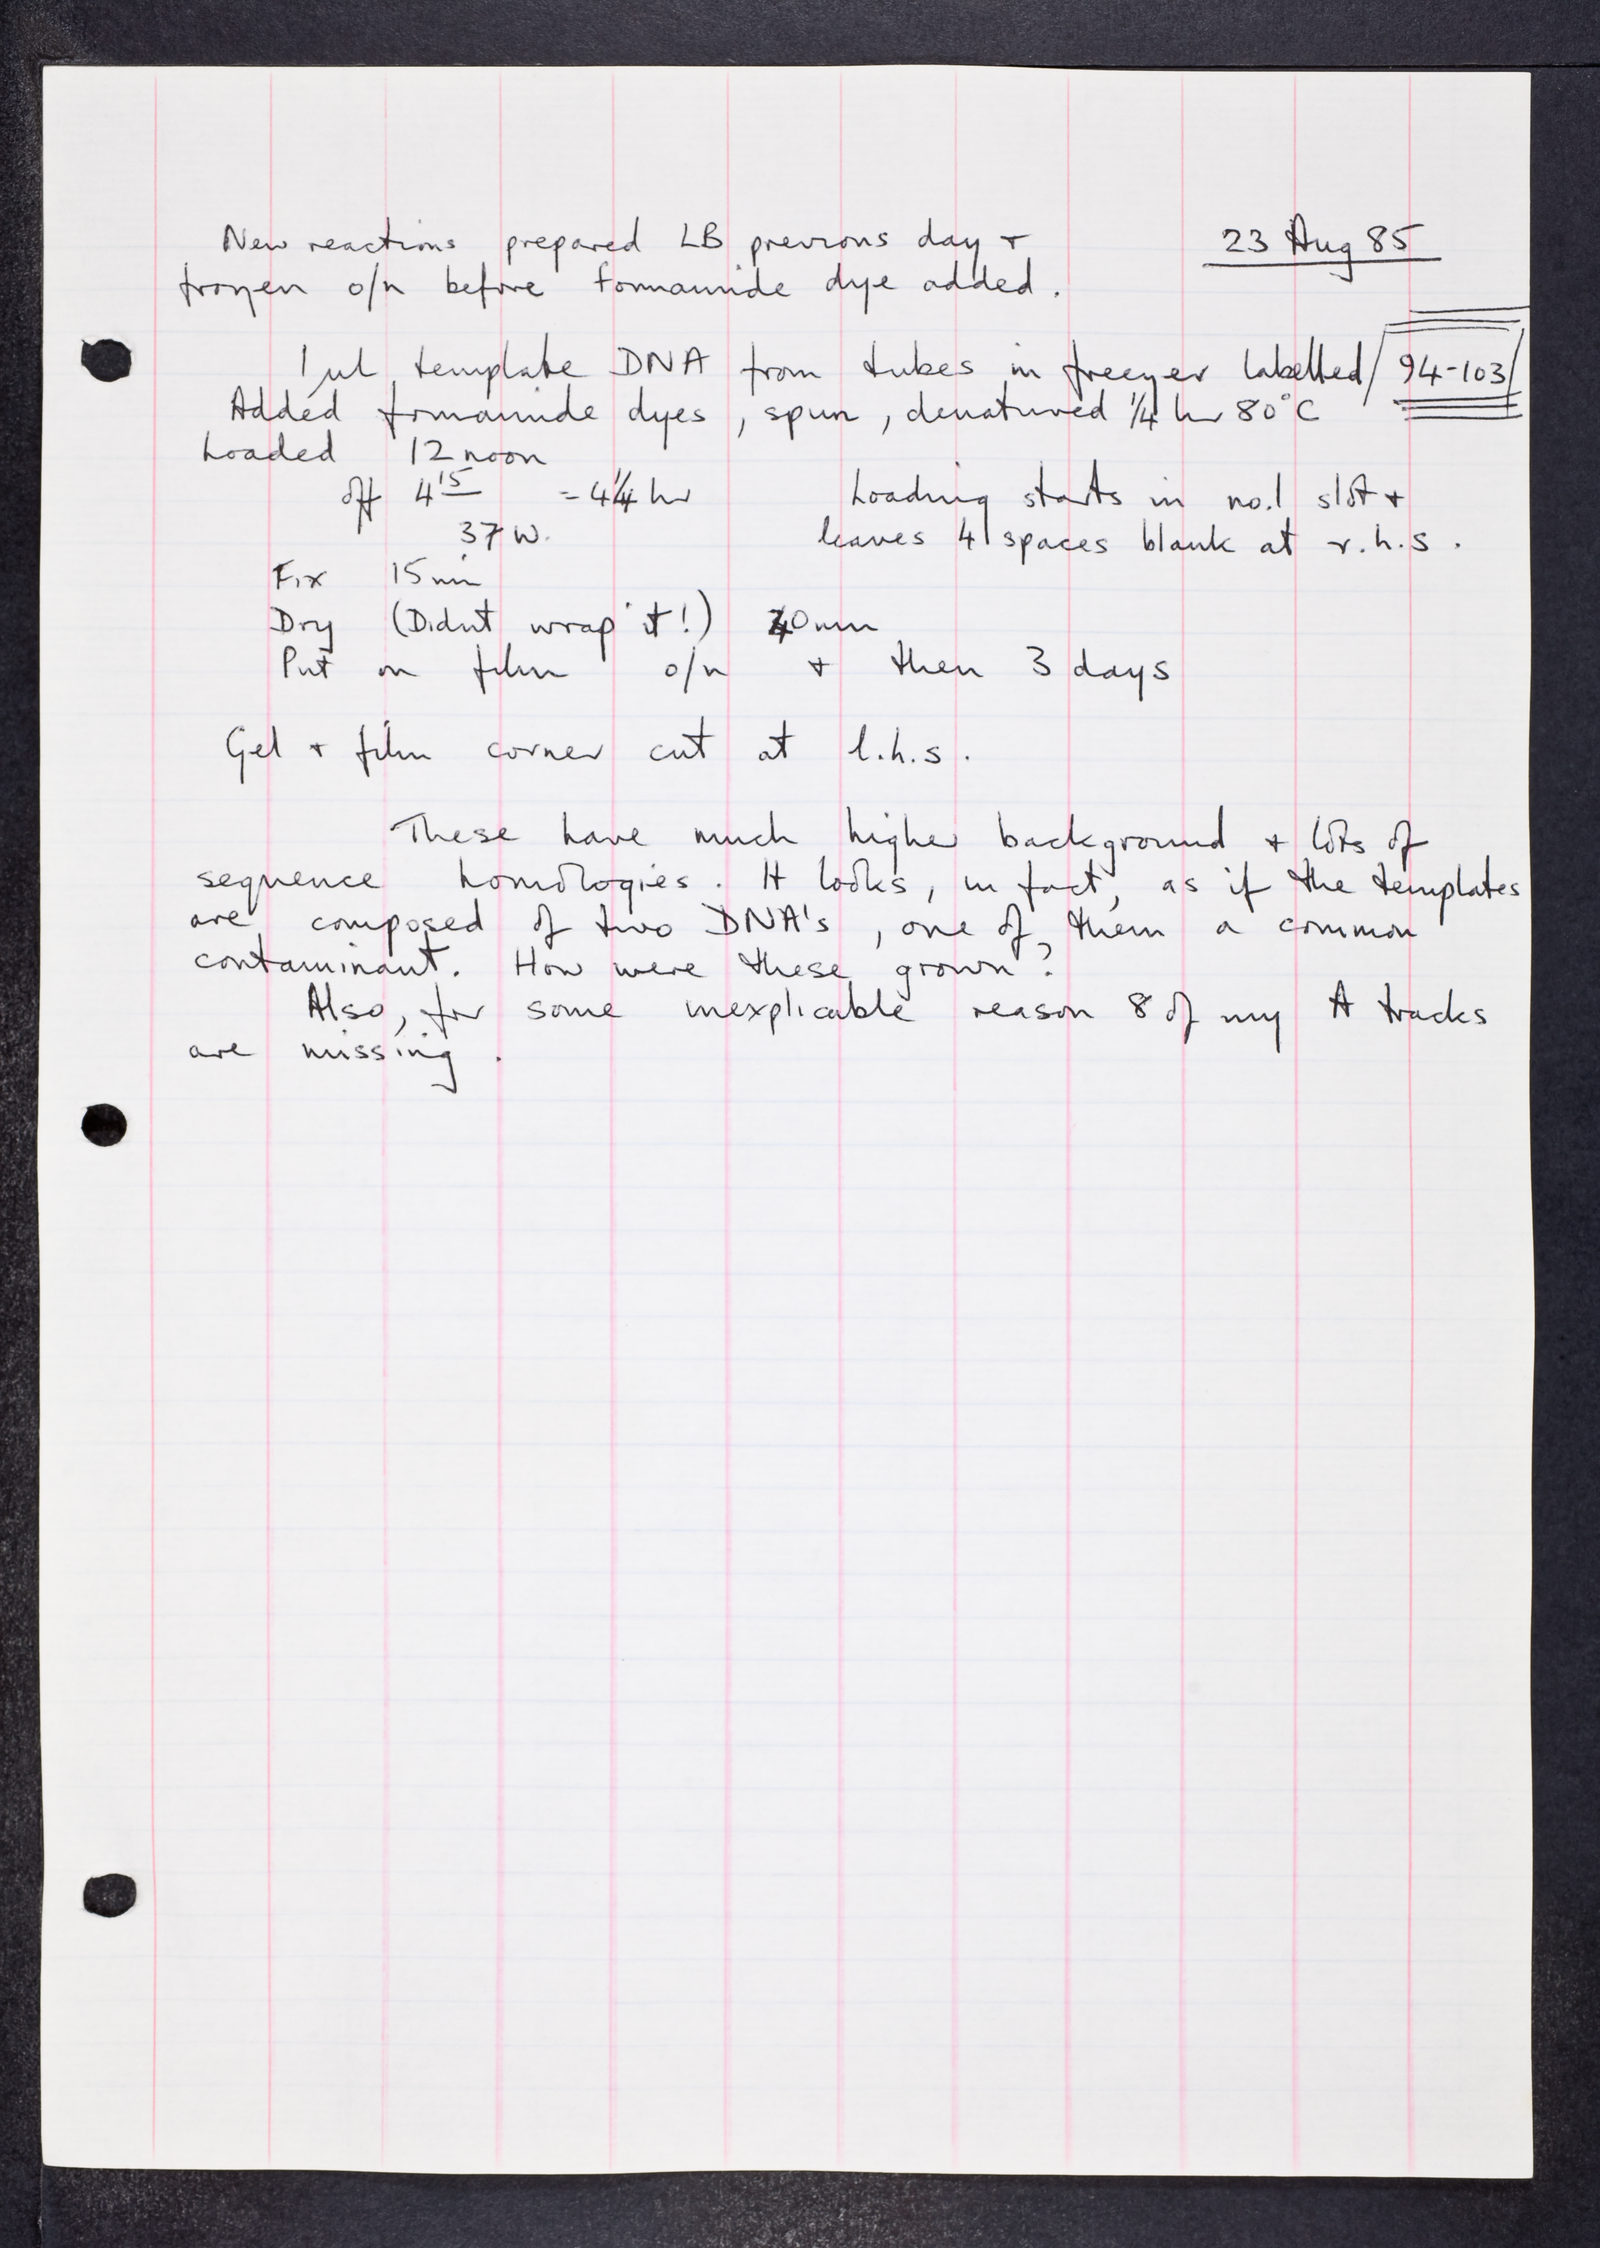 New reactions prepared LB previous day + 23 Aug 85
frozen o/n before formamide dye added.
1 µl template DNA from tubes in freezer labelled 94-103
Added formamide dyes, spun, denatured 1/4 hr 80°C
Loaded 12 noon
off 4 15 = 4 1/4 hr Loading starts in no.1 slot +
37 W. leaves 4 spaces blank at r.h.s.
Fix 15 min
Dry (Didnt wrap it!) 40 min
Put on film o/n + then 3 days
Gel + film corner cut at l.h.s.
These have much higher background + lots of
sequence homologies. It looks, in fact, as if the templates
are composed of two DNA's, one of them a common
contaminant. How were these grown?
Also, for some inexplicable reason 8 of my A tracks
are missing.